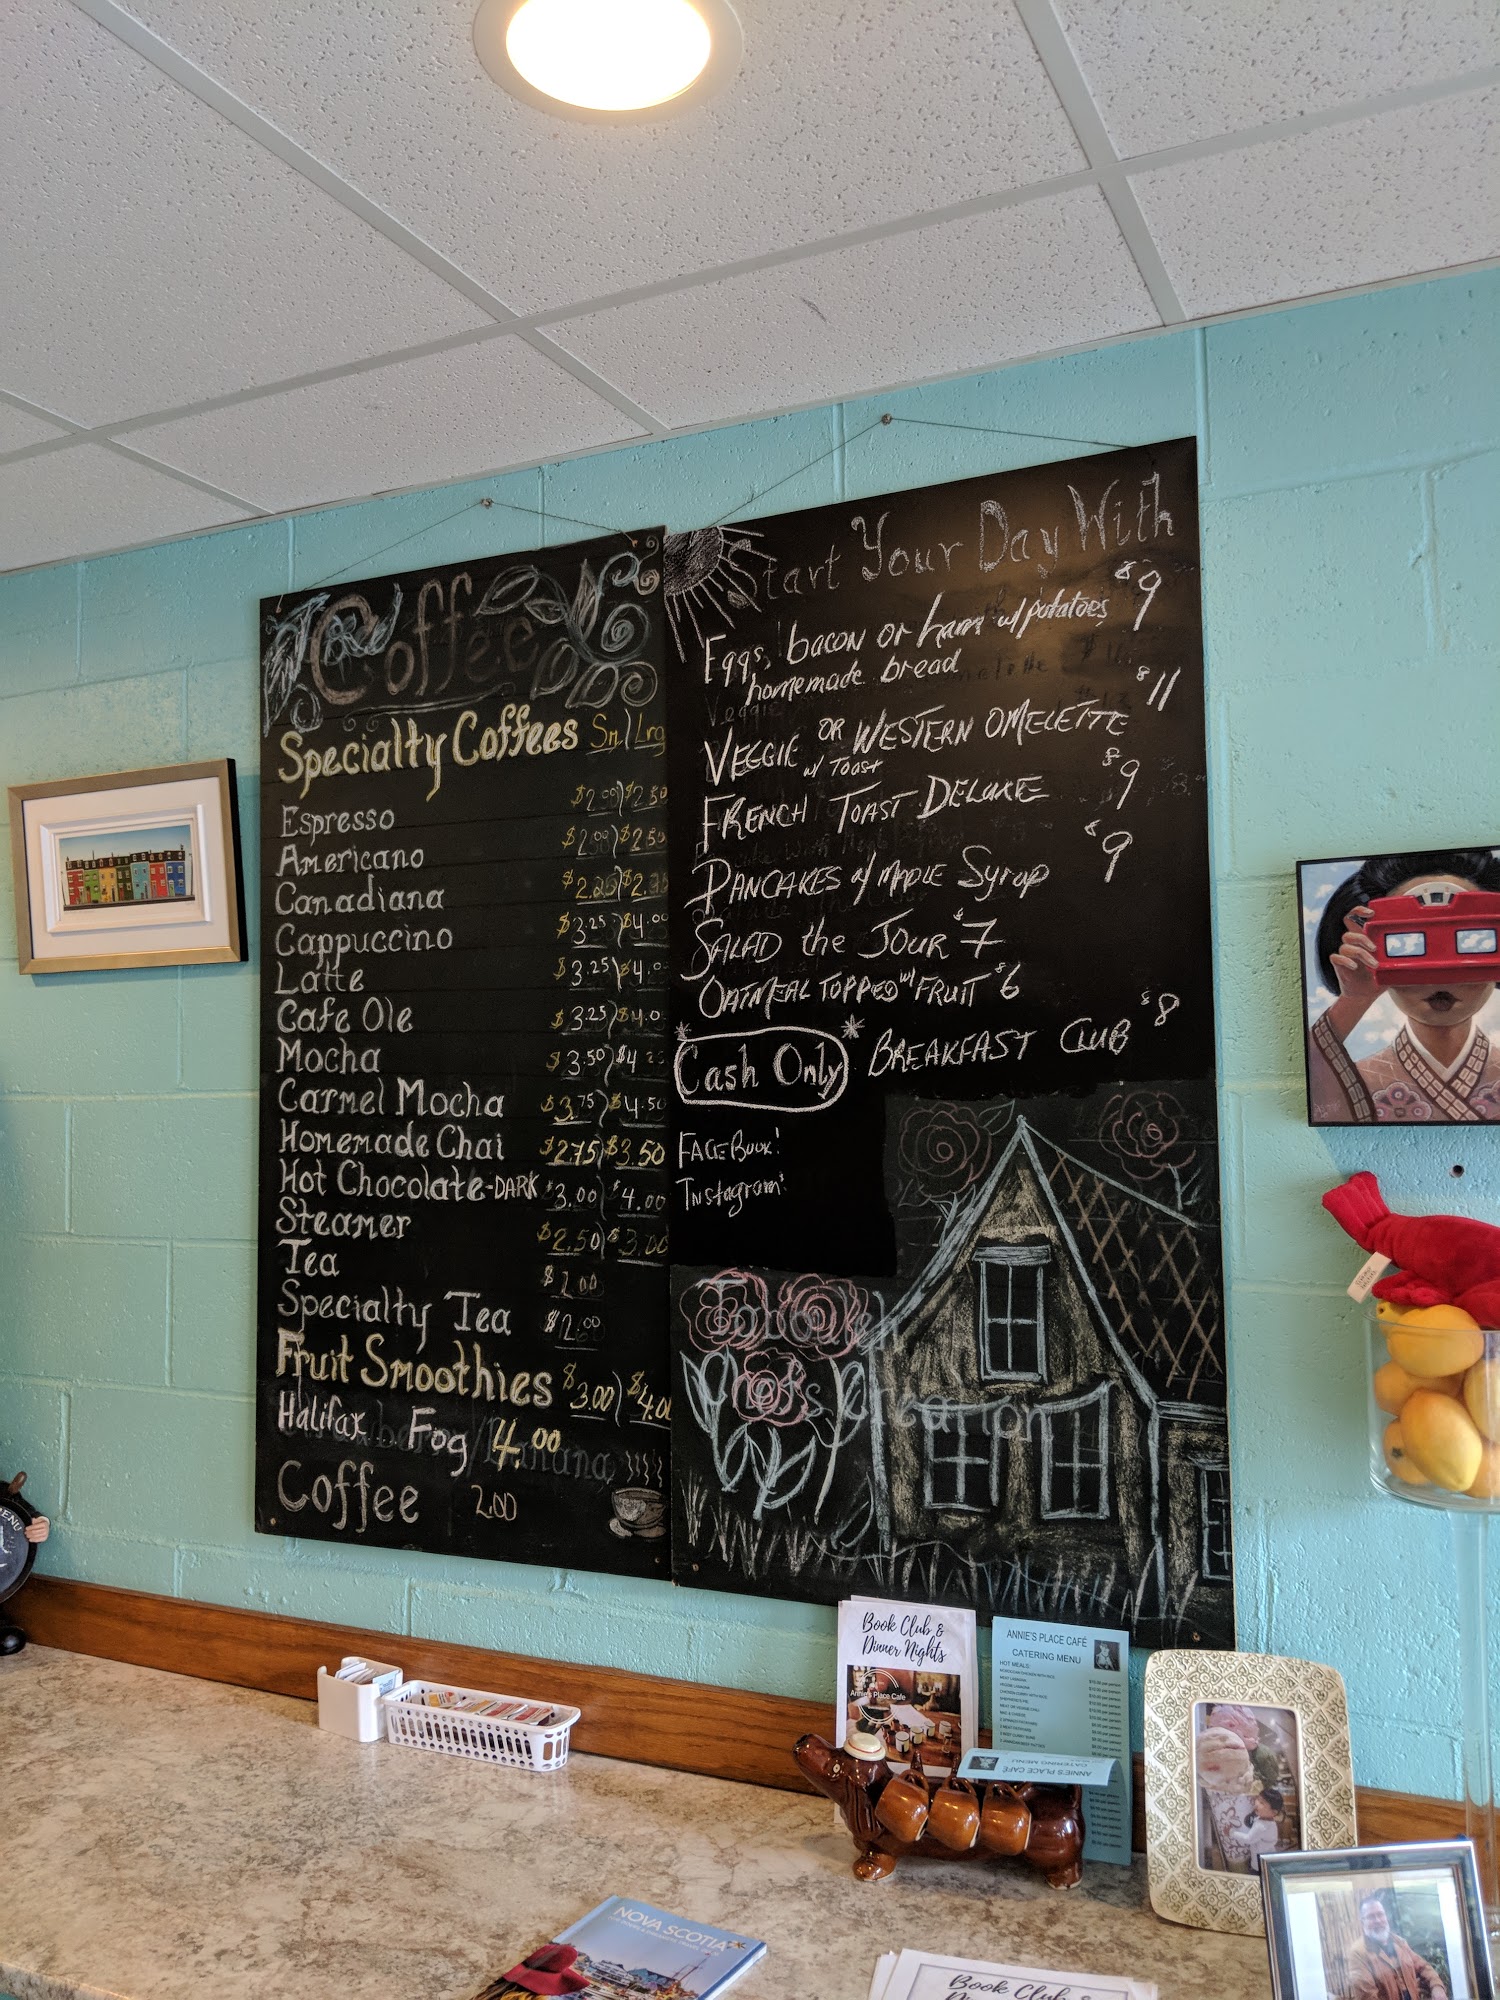 Coffee
Specialty Coffees Sm/Lrg
Espresso $2.00/$2.50
Americano $2.00/$2.50
Canadiana $2.25/$2.
Cappuccino $3.25/$4.00
Latte $3.25/$4.0
Cafe Ole $3.25/$4.0
Mocha $3.50/$4.25
Carmel Mocha $3.75/$4.50
Homemade Chai $2.75/$3.50
Hot Chocolate-DARK $3.00/$4.00
Steamer $2.50/$3.00
Tea $2.00
Specialty Tea $2.00
Fruit Smoothies $3.00/$4.00
Halifax Fog 4.00
Coffee 2.00
Start Your Day With
Eggs, bacon or ham w/potatoes, $9
homemade bread
VEGGIE OR WESTERN OMELETTE $11
w/ TOAST
FRENCH TOAST DELUXE $9
PANCAKES w/ MAPLE Syrup $9
SALAD the JOUR $7
OATMEAL TOPPED w/ FRUIT $6
*Cash Only* BREAKFAST CLUB $8
FACEBOOK!
Instagram!
Book Club &
Dinner Nights
Annie's Place Cafe
ANNIE'S PLACE CAFÉ
CATERING MENU
HOT MEALS:
ANNIE'S PLACE CAFÉ
CATERING MENU
NOVA SCOTIA
Book Club &
MENU